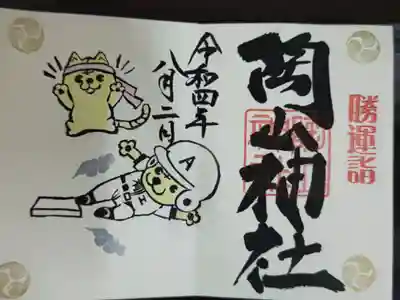 勝運詣
岡山神社
令和四年
八月二日
A